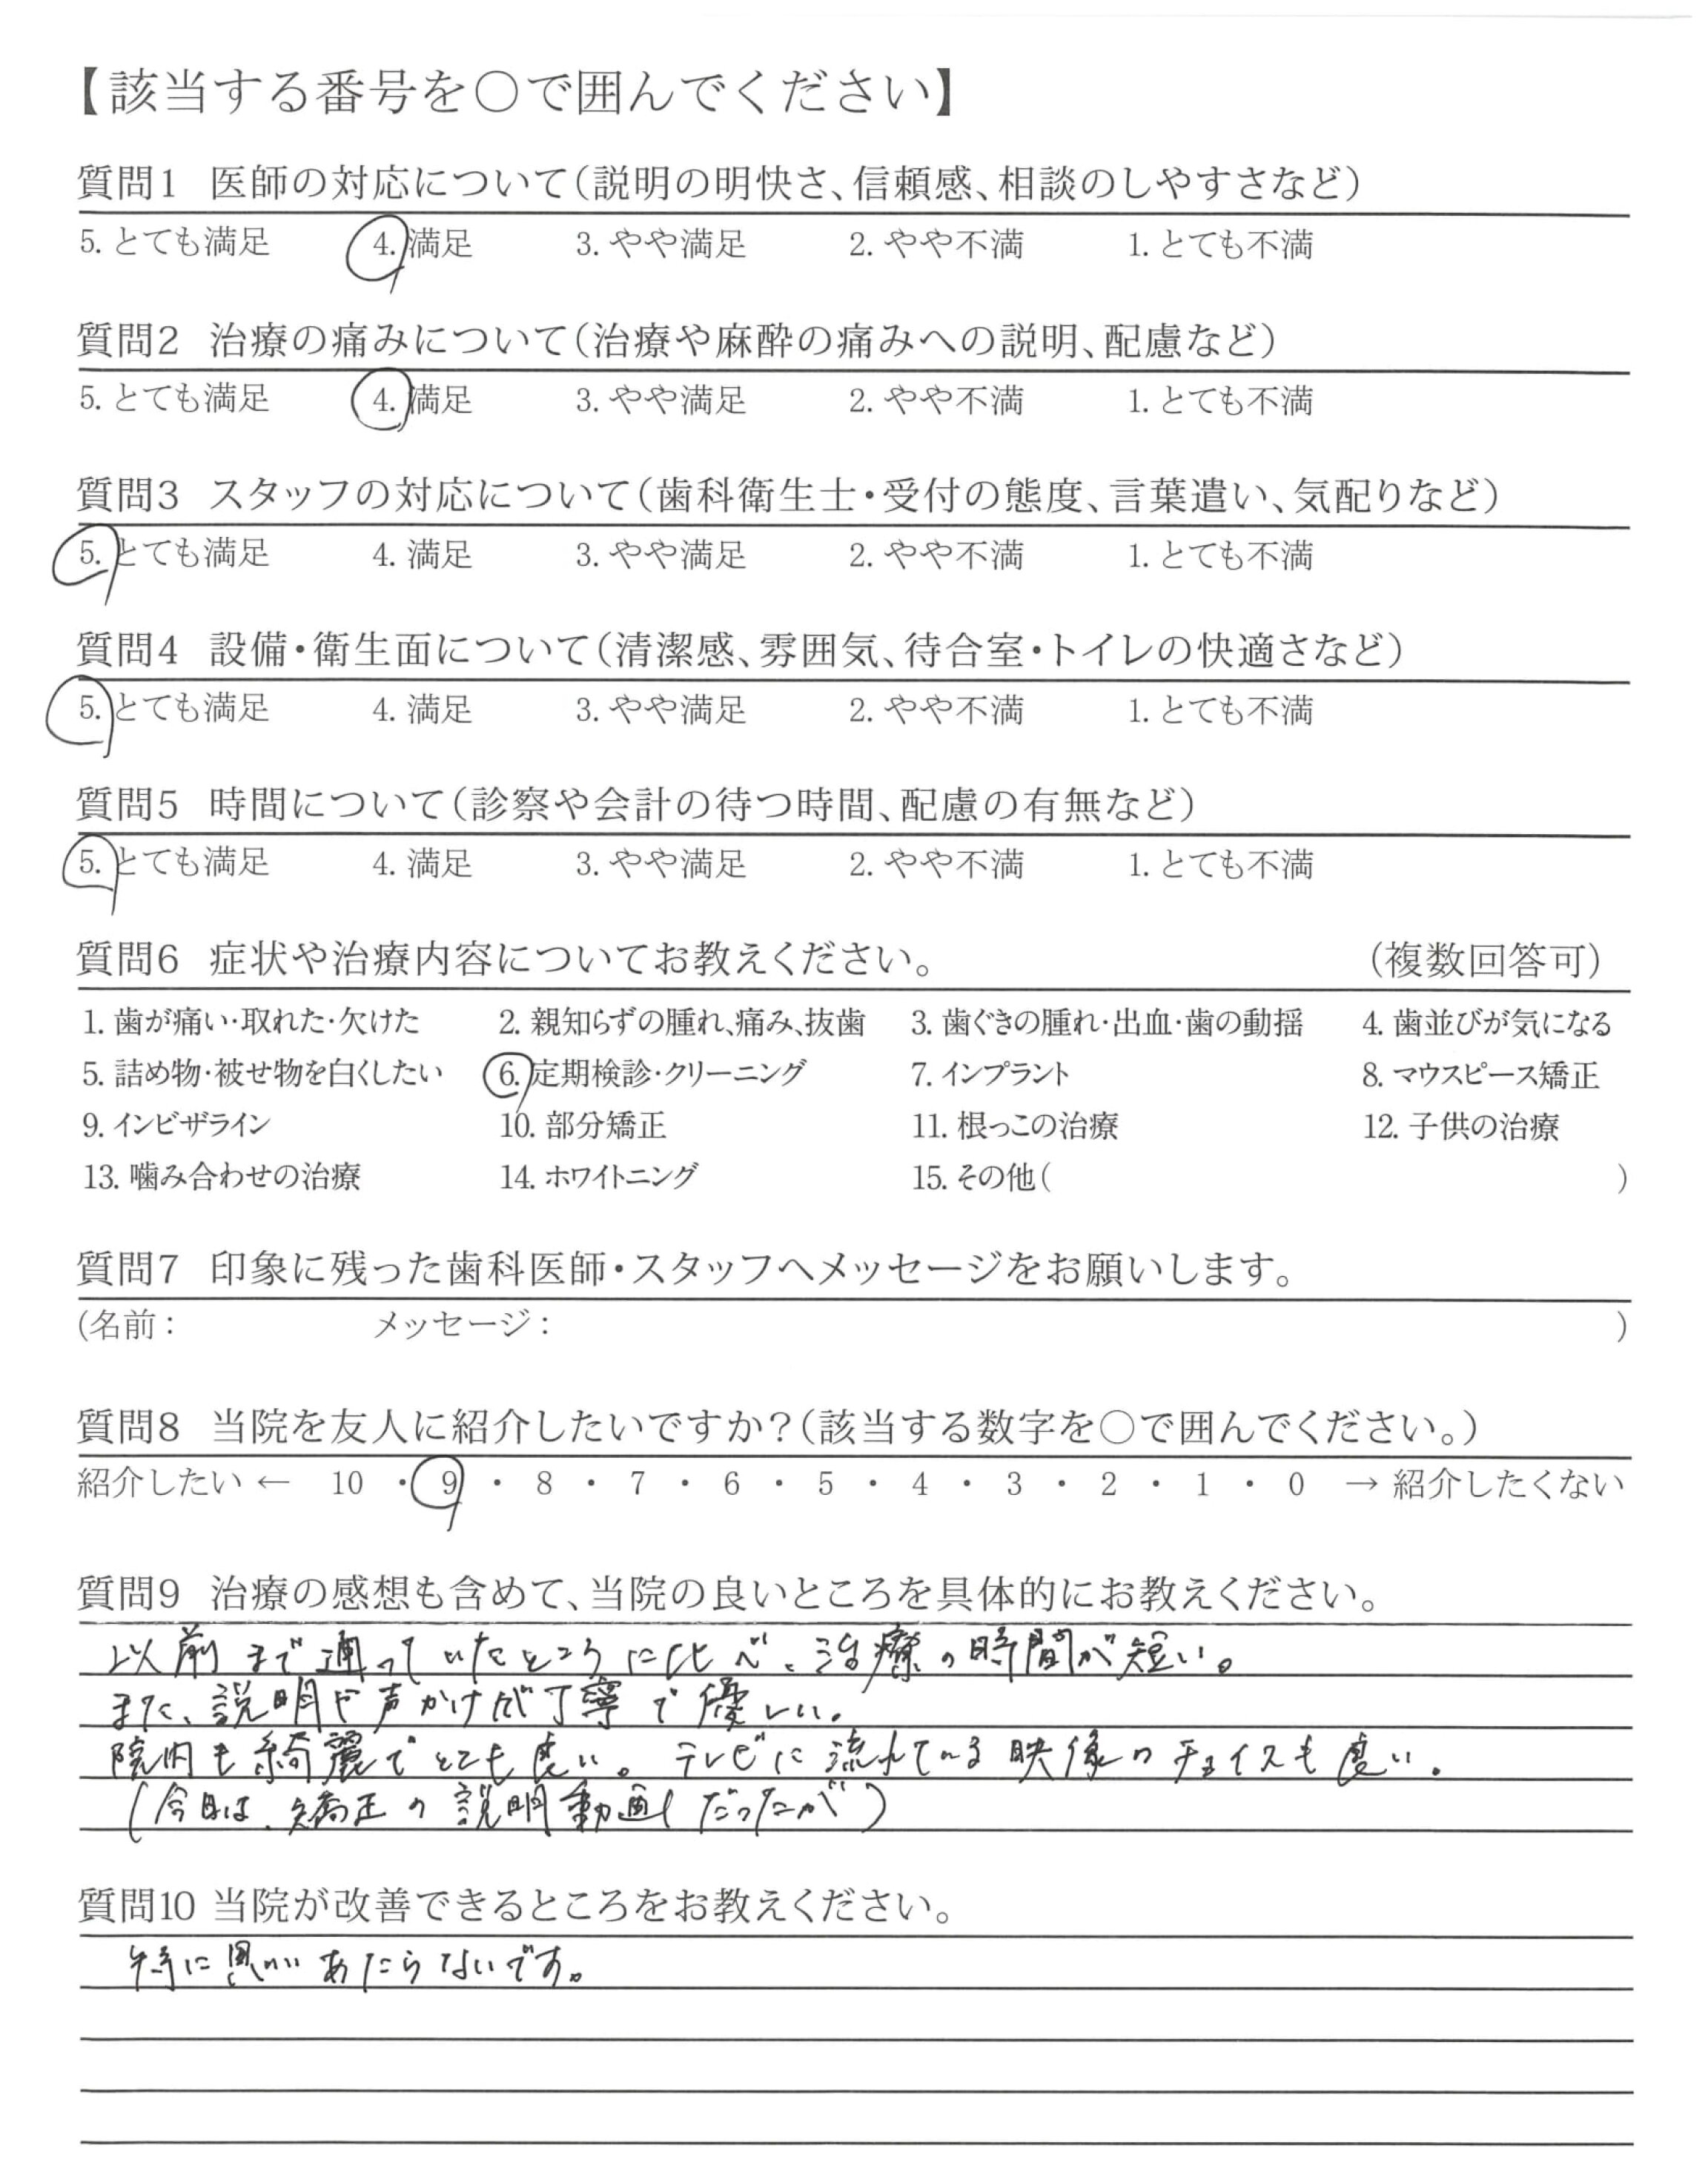 【該当する番号を○で囲んでください】
質問1 医師の対応について(説明の明快さ、信頼感、相談のしやすさなど)
5. とても満足 4. 満足 3. やや満足 2. やや不満 1. とても不満
質問2 治療の痛みについて(治療や麻酔の痛みへの説明、配慮など)
5. とても満足 4. 満足 3. やや満足 2. やや不満 1. とても不満
質問3 スタッフの対応について(歯科衛生士・受付の態度、言葉遣い、気配りなど)
5. とても満足 4. 満足 3. やや満足 2. やや不満 1. とても不満
質問4 設備・衛生面について(清潔感、雰囲気、待合室・トイレの快適さなど)
5. とても満足 4. 満足 3. やや満足 2. やや不満 1. とても不満
質問5 時間について(診察や会計の待つ時間、配慮の有無など)
5. とても満足 4. 満足 3. やや満足 2. やや不満 1. とても不満
質問6 症状や治療内容についてお教えください。 (複数回答可)
1. 歯が痛い・取れた・欠けた 2. 親知らずの腫れ、痛み、抜歯 3. 歯ぐきの腫れ・出血・歯の動揺 4. 歯並びが気になる
5. 詰め物・被せ物を白くしたい 6. 定期検診・クリーニング 7. インプラント 8. マウスピース矯正
9. インビザライン 10. 部分矯正 11. 根っこの治療 12. 子供の治療
13. 噛み合わせの治療 14. ホワイトニング 15. その他( )
質問7 印象に残った歯科医師・スタッフへメッセージをお願いします。
(名前: メッセージ: )
質問8 当院を友人に紹介したいですか?(該当する数字を○で囲んでください。)
紹介したい ← 10 ・ 9 ・ 8 ・ 7 ・ 6 ・ 5 ・ 4 ・ 3 ・ 2 ・ 1 ・ 0 → 紹介したくない
質問9 治療の感想も含めて、当院の良いところを具体的にお教えください。
以前まで通っていたところに比べ、治療の時間が短い。
また、説明や声かけが丁寧で優しい。
院内も綺麗でとても良い。テレビに流れている映像のチョイスも良い。
(今日は、矯正の説明動画だったが)
質問10 当院が改善できるところをお教えください。
特に思いあたらないです。